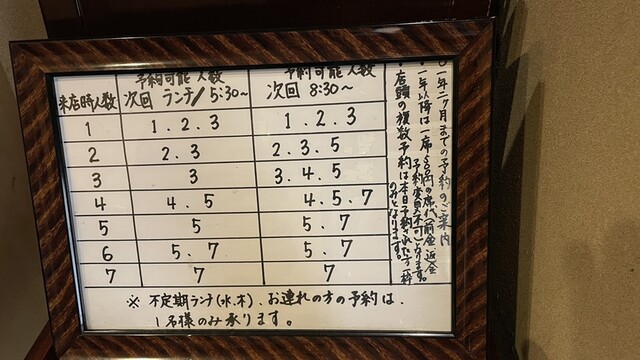 来店時人数 予約可能人数 次回 ランチ/5:30~ 予約可能人数 次回 8:30~
1 1.2.3 1.2.3
2 2.3 2.3.5
3 3 3.4.5
4 4.5 4.5.7
5 5 5.7
6 5.7 5.7
7 7 7
※ 不定期ランチ(水.木)、お連れの方の予約は、
1名様のみ承ります。
一年二ヶ月までの予約のご案内
・一年以降は一席500円の席代(前金、返金
予約変更不可)となります。
・店頭の複数予約は本日予約された方一枠
のみとなります。